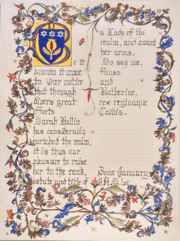 er it
known it came
to our notice
that through
divers great
efforts
Sarah
has considerably
enriched the realm,
it is thus our
pleasure to raise
her to the rank,
estate and title of
a Lady of the
realm, and award
her arms.
Do say we,
and
Katherine,
rex reginaque
Caidis.
Done January